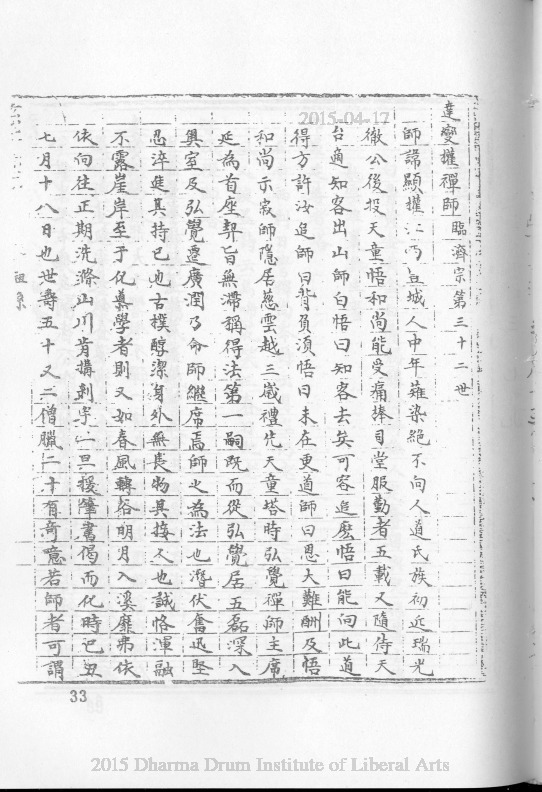 達變權禪師 臨濟宗第三十二世
師諱顯權江西宜城人中年薙染絕不向人道氏族初近瑞光
徹公後投天童悟和尚能受痛捧司堂服勤者五載又隨侍天
台適知客出山師白悟曰知客去矣可容追麽悟曰能向此道
得方許汝追師曰背負須悟曰未在更道師曰恩大難酬及悟
和尚示寂師隱居慈雲越三歲禮先天童塔時弘覺禪師主席
延為首座契旨無滯稱得法第一嗣既而從弘覺居五磊深入
興室及弘覺遷廣潤乃命師繼席焉師之為法也潛伏奮迅堅
忍淬進其持己也古樸醇潔身外無長物其接人也誠恪渾融
不露崖岸至于化真學者則又如春風轉谷明月入溪靡弗依
依向往正期洗滌山川肯搆剎宇一旦援筆書偈而化時己丑
七月十八日也世壽五十又二僧臘二十有奇噫若師者可謂
33
2015-04-17
2015 Dharma Drum Institute of Liberal Arts